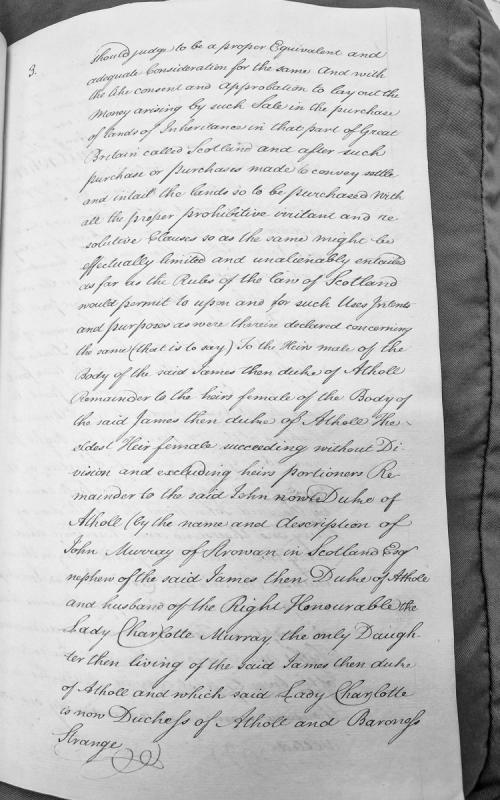 3.
should judge to be a proper Equivalent and
adequate Consideration for the same And with
the like consent and approbation to lay out the
Money arising by such Sale in the purchase
of lands of Inheritances in that part of Great
Britain called Scotland and after such
purchase or purchases made to convey settle
and intail the lands so to be purchased with
all the proper prohibitive irritant and re
solutive Clauses so as the same might be
effectually limited and unalienably entailed
as far as the Rules of the law of Scotland
would permit to upon and for such Uses Intents
and purposes as were therein declared concerning
the same (that is to say) To the Heirs male of the
Body of the said James then duke of Atholl
Remainder to the heirs female of the Body of
the said James then duke of Atholl the
eldest Heir female succeeding without Di-
vision and excluding heirs portioners Re-
mainder to the said John now Duke of
Atholl (by the name and description of
John Murray of Strowan in Scotland Esqr
nephew of the said James then Duke of Atholl
and husband of the Right Honourable the
Lady Charlotte Murray the only Daugh-
ter then living of the said James then duke
of Atholl and which said Lady Charlotte
is now Duchess of Atholl and Baroness
Strange)